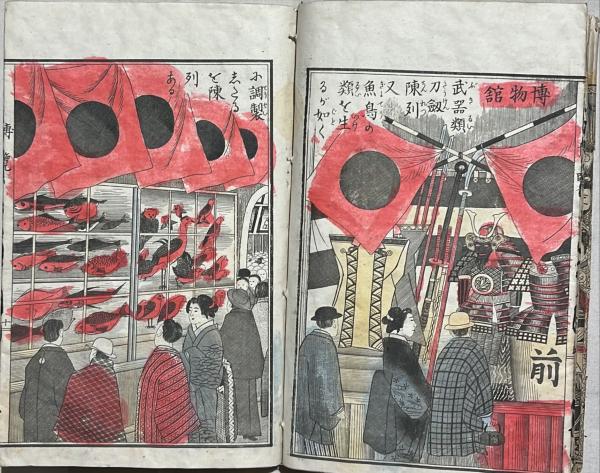 博物館
武器類
刀劔
陳列
又
魚鳥の
類を生
るが如く
前
に調製
志たる
を陳
列
ある
博覧
十